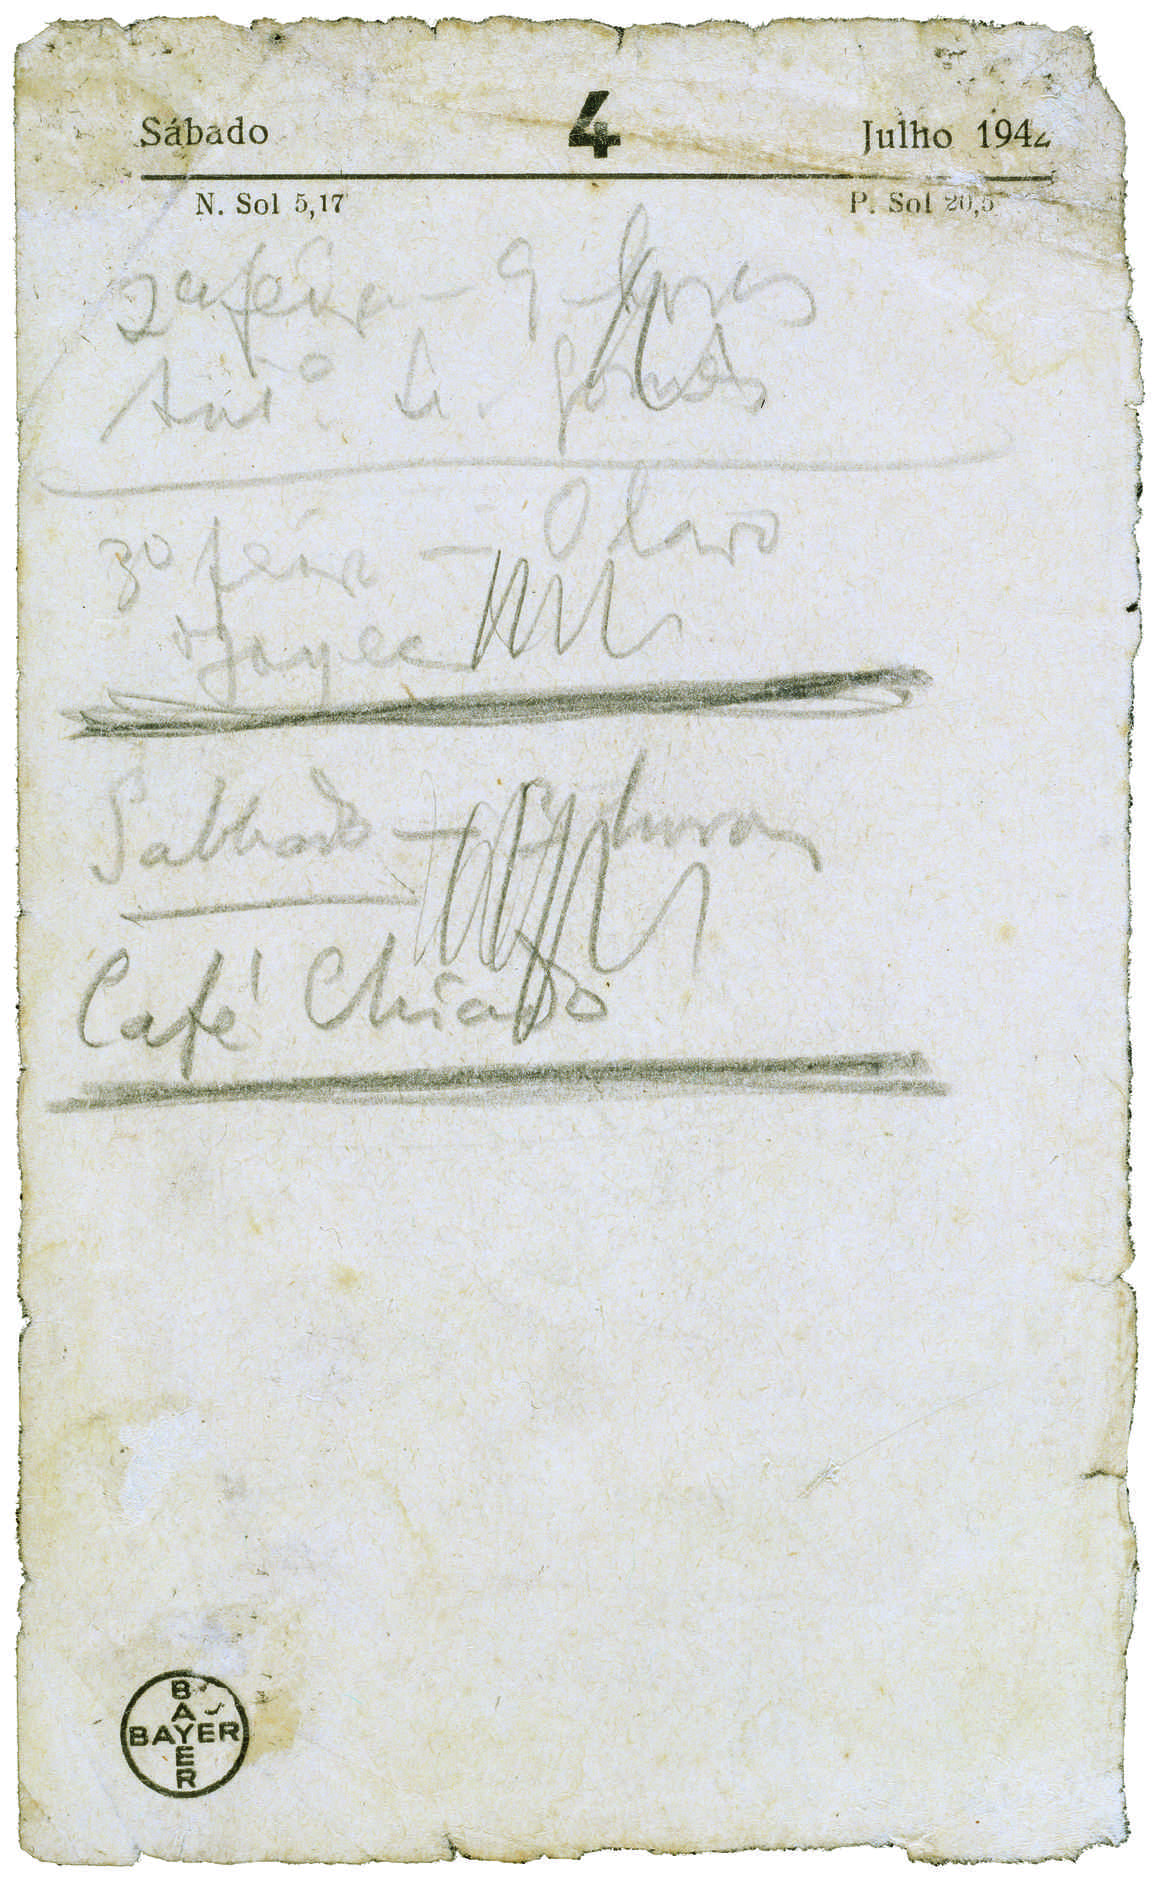 Sábado 4 Julho 1942
N. Sol 5,17 P. Sol 20,5
2a feira - 9 horas
Antº. L. Gomes
3º feira - Olavo
Sabbado -
Café Chiado
BAYER
BAYER